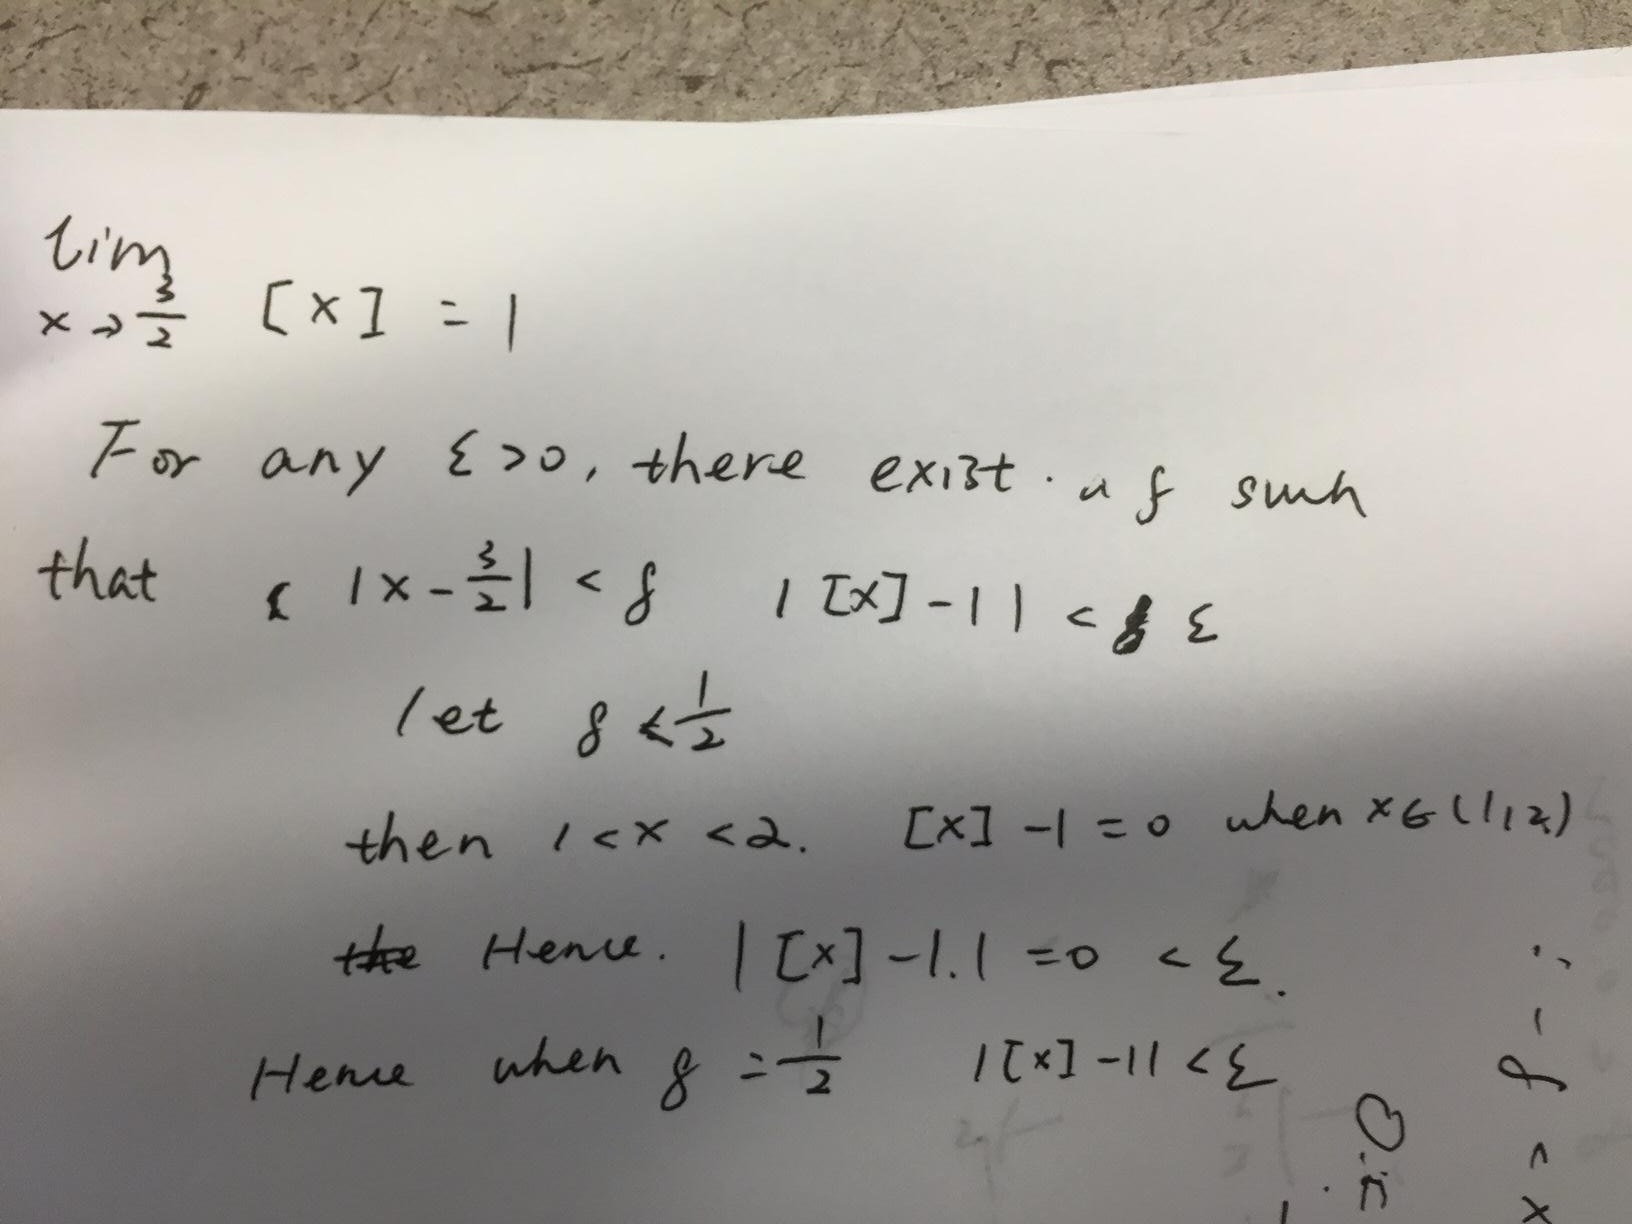 lim
x→3/2 [x] = 1
For any ε>0, there exist a δ such
that |x-3/2| < δ |[x]-1| < ε
let δ < 1/2
then 1<x<2. [x]-1=0 when x∈(1,2)
the Hence. |[x]-1.| =0 < ε.
Hence when δ = 1/2 |[x]-1| < ε